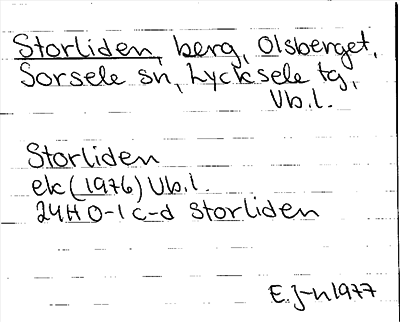 Storliden, berg, Olsberget,
Sorsele sn, Lycksele tg,
Vb.l.
Storliden
ek (1976) Vb.l.
24H 0-1 c-d Storliden
E.J-n 1977